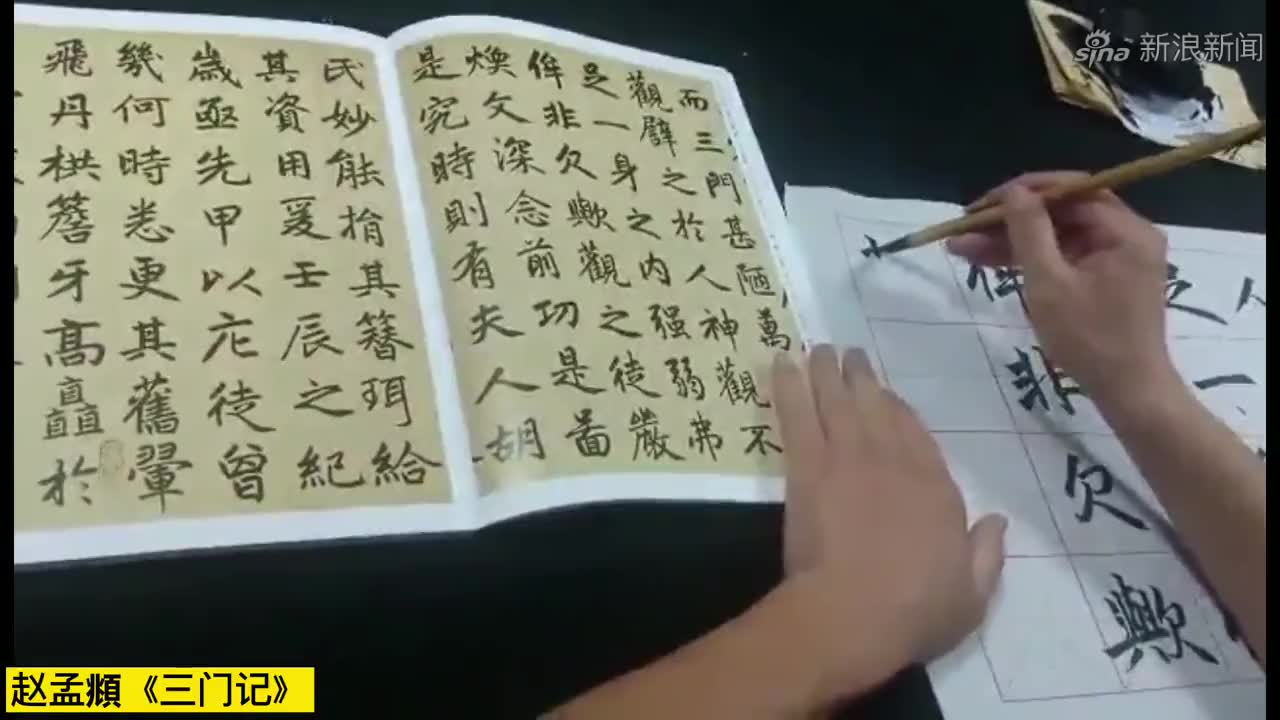 sina 新浪新闻
而三門甚陋萬
觀譬之於人神觀不
足一身之內强弱弗
侔非欠歟觀之徒嚴
煥文深念前功是啚
是究時則有夫人胡
民妙能捐其簪珥給
其資用爰壬辰之紀
歲亟先甲以庀徒曾
幾何時悉更其舊翬
飛丹栱簷牙高矗於
侔非欠歟
赵孟頫《三门记》